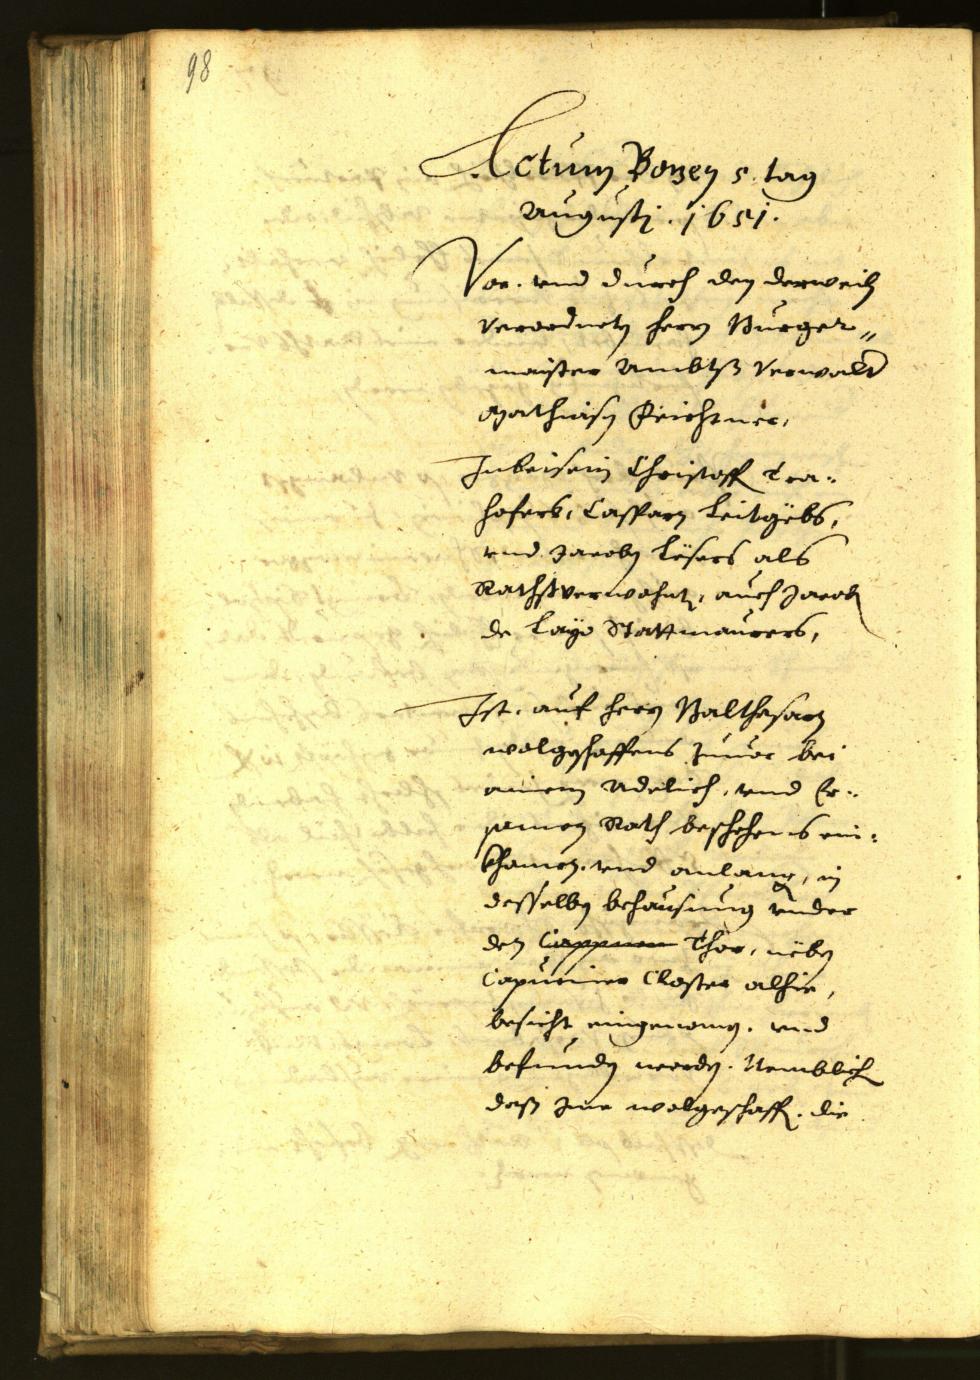 98
Actum Bozen 5. tag
Augustj. 1651.
Vor. vnd durch den derweil
verordneten herrn Burger„
maister Ambtß Verwalt
Mathiasen Feichtner,
Inbeisein Christoff Tra„
hofers, Casparn Leitgëbs,
vnd Jacoben Lësers als
Rathßverwohnte, auch Jacob
de Layo Stattmaurers,
Ist. auf herrn Balthasarn
wolgeschaffens zuuor bei
ainem Adelich, vnd Er„
samen Rath beschehens ein„
khomen. vnd anlang, in
desselben behausung vnder
den Thor, nëben
Capuciner Closter alhie,
besicht eingenomen. vnd
befunden worden. Nemblich
dass Ime wolgeschaff. die